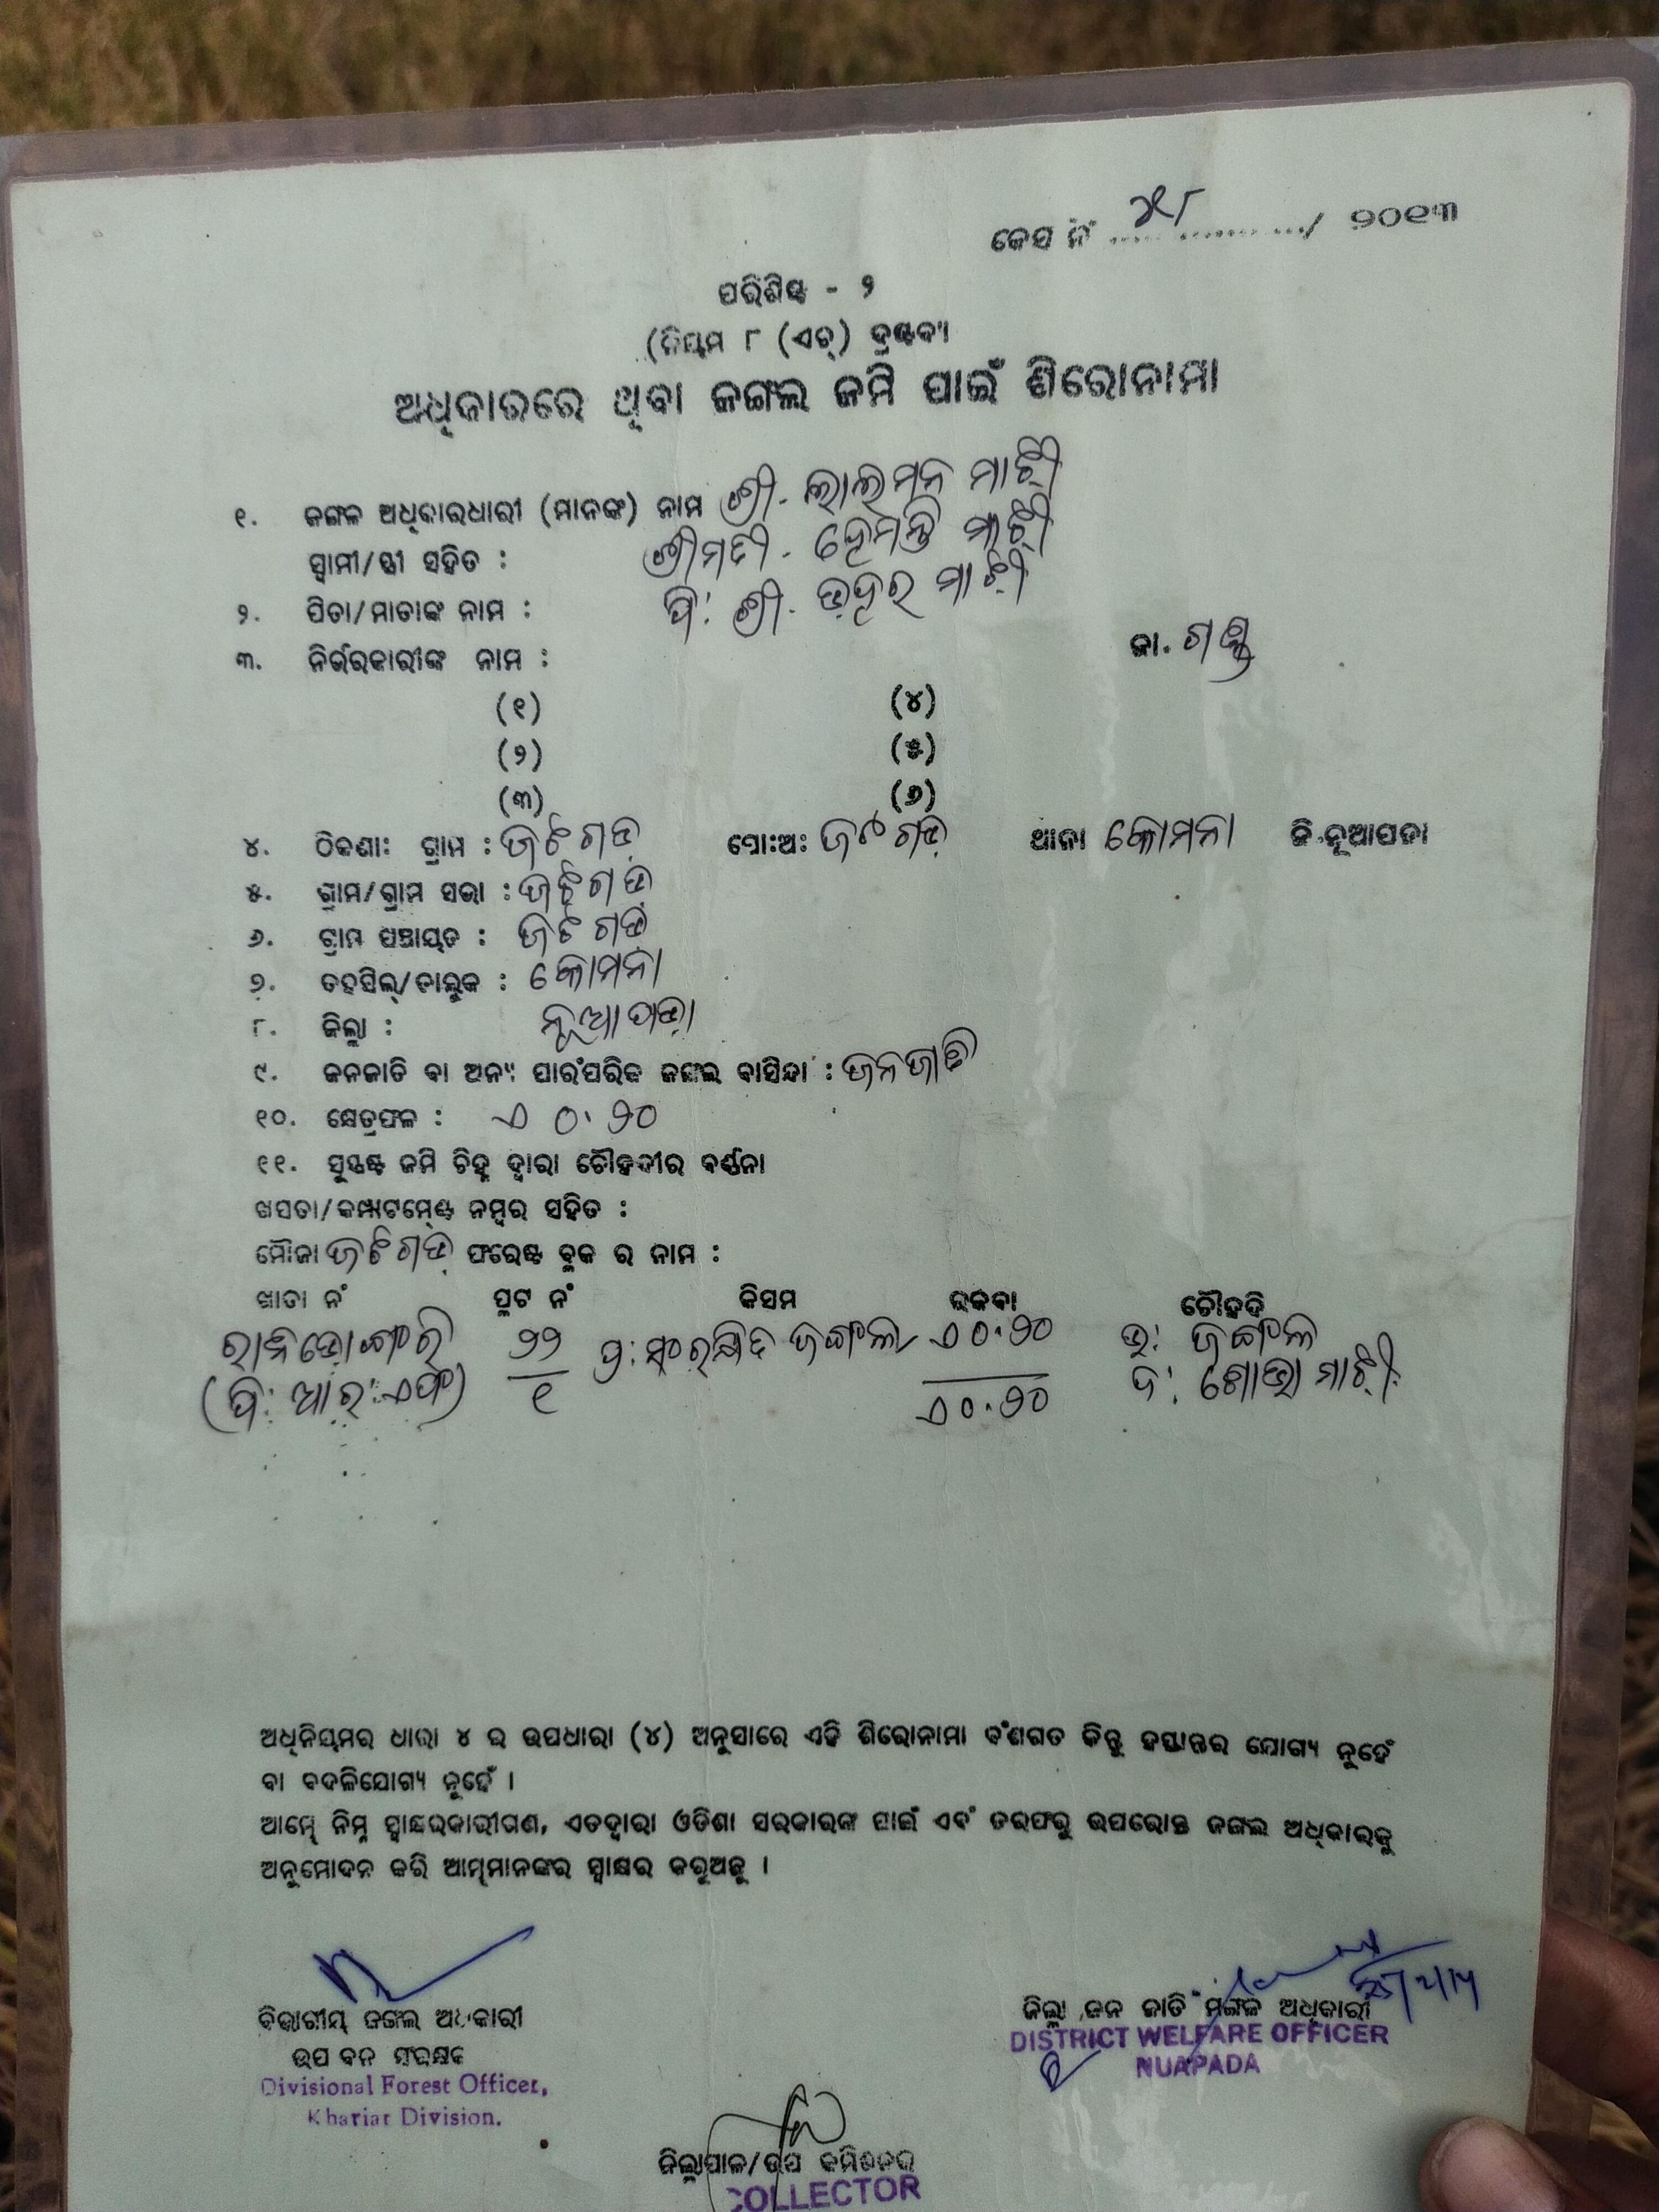 କେସ ନଂ ............../ ୨୦୧୩
ପରିଶିଷ୍ଟ - ୨
(ନିୟମ ୮ (ଏଚ୍) ଦ୍ରଷ୍ଟବ୍ୟ
ଅଧିକାରରେ ଥିବା ଜଙ୍ଗଲ ଜମି ପାଇଁ ଶିରୋନାମା
୧. ଜଙ୍ଗଳ ଅଧିକାରଧାରୀ (ମାନଙ୍କ) ନାମ ଶ୍ରୀ. ଲାଲମନ ମାଝୀ
ସ୍ୱାମୀ/ସ୍ତ୍ରୀ ସହିତ : ଶ୍ରୀମତୀ. ହେମନ୍ତି ମାଝୀ
୨. ପିତା/ମାତାଙ୍କ ନାମ : ପି: ଶ୍ରୀ. ମାଝୀ
୩. ନିର୍ଭରକାରୀଙ୍କ ନାମ : ଜା. ଗଣ୍ଡ
(୧) (୪)
(୨) (୫)
(୩) (୬)
୪. ଠିକଣା: ଗ୍ରାମ : ଜଟଗଡ଼ ପୋ:ଅ: ଜଟଗଡ଼ ଥାନା କୋମନା ଜି.ନୂଆପଡା
୫. ଗ୍ରାମ/ଗ୍ରାମ ସଭା : ଜଟଗଡ଼
୬. ଗ୍ରାମ ପଞ୍ଚାୟତ : ଜଟଗଡ଼
୭. ତହସିଲ୍/ତାଲୁକ : କୋମନା
୮. ଜିଲ୍ଲା : ନୂଆପଡ଼ା
୯. ଜନଜାତି ବା ଅନ୍ୟ ପାରଂପରିକ ଜଙ୍ଗଲ ବାସିନ୍ଦା : ଜନଜାତି
୧୦. କ୍ଷେତ୍ରଫଳ : ଏ ୦.୨୦
୧୧. ସୁସ୍ପଷ୍ଟ ଜମି ଚିହ୍ନ ଦ୍ୱାରା ଚୌହଦୀର ବର୍ଣ୍ଣନା
ଖସଡା/କମ୍ପାଟମେଣ୍ଟ ନମ୍ବର ସହିତ :
ମୌଜା ଜଟଗଡ଼ ଫରେଷ୍ଟ ବ୍ଲକ ର ନାମ :
ଖାତା ନଂ ପ୍ଲଟ ନଂ କିସମ ରକବା ଚୌହଦି
ରାନିଡୋଙ୍ଗରି ୨୨ ପ୍ର: ସଂରକ୍ଷିତ ଜଙ୍ଗଲ ଏ ୦.୨୦ ଉ: ଜଙ୍ଗଲ
(ପି: ଆର: ଏଫ) ୧ ଏ ୦.୨୦ ଦ: ଶୋଭା ମାଝୀ
ଅଧିନିୟମର ଧାରା ୪ ର ଉପଧାରା (୪) ଅନୁସାରେ ଏହି ଶିରୋନାମା ବଂଶଗତ କିନ୍ତୁ ହସ୍ତାନ୍ତର ଯୋଗ୍ୟ ନୁହେଁ
ବା ବଦଳିଯୋଗ୍ୟ ନୁହେଁ ।
ଆମ୍ଭେ ନିମ୍ନ ସ୍ୱାକ୍ଷରକାରୀଗଣ, ଏତଦ୍ୱାରା ଓଡିଶା ସରକାରଙ୍କ ପାଇଁ ଏବଂ ତରଫରୁ ଉପରୋକ୍ତ ଜଙ୍ଗଲ ଅଧିକାରକୁ
ଅନୁମୋଦନ କରି ଆମ୍ଭମାନଙ୍କର ସ୍ୱାକ୍ଷର କରୁଅଛୁ ।
ବିଭାଗୀୟ ଜଙ୍ଗଲ ଅଧିକାରୀ
ଉପ ବନ ସଂରକ୍ଷକ
Divisional Forest Officer,
Khariar Division.
ଜିଲ୍ଲା ଜନ ଜାତି ମଙ୍ଗଳ ଅଧିକାରୀ
DISTRICT WELFARE OFFICER
NUAPADA
ଜିଲ୍ଲାପାଳ/ଉପ କମିଶନର
COLLECTOR